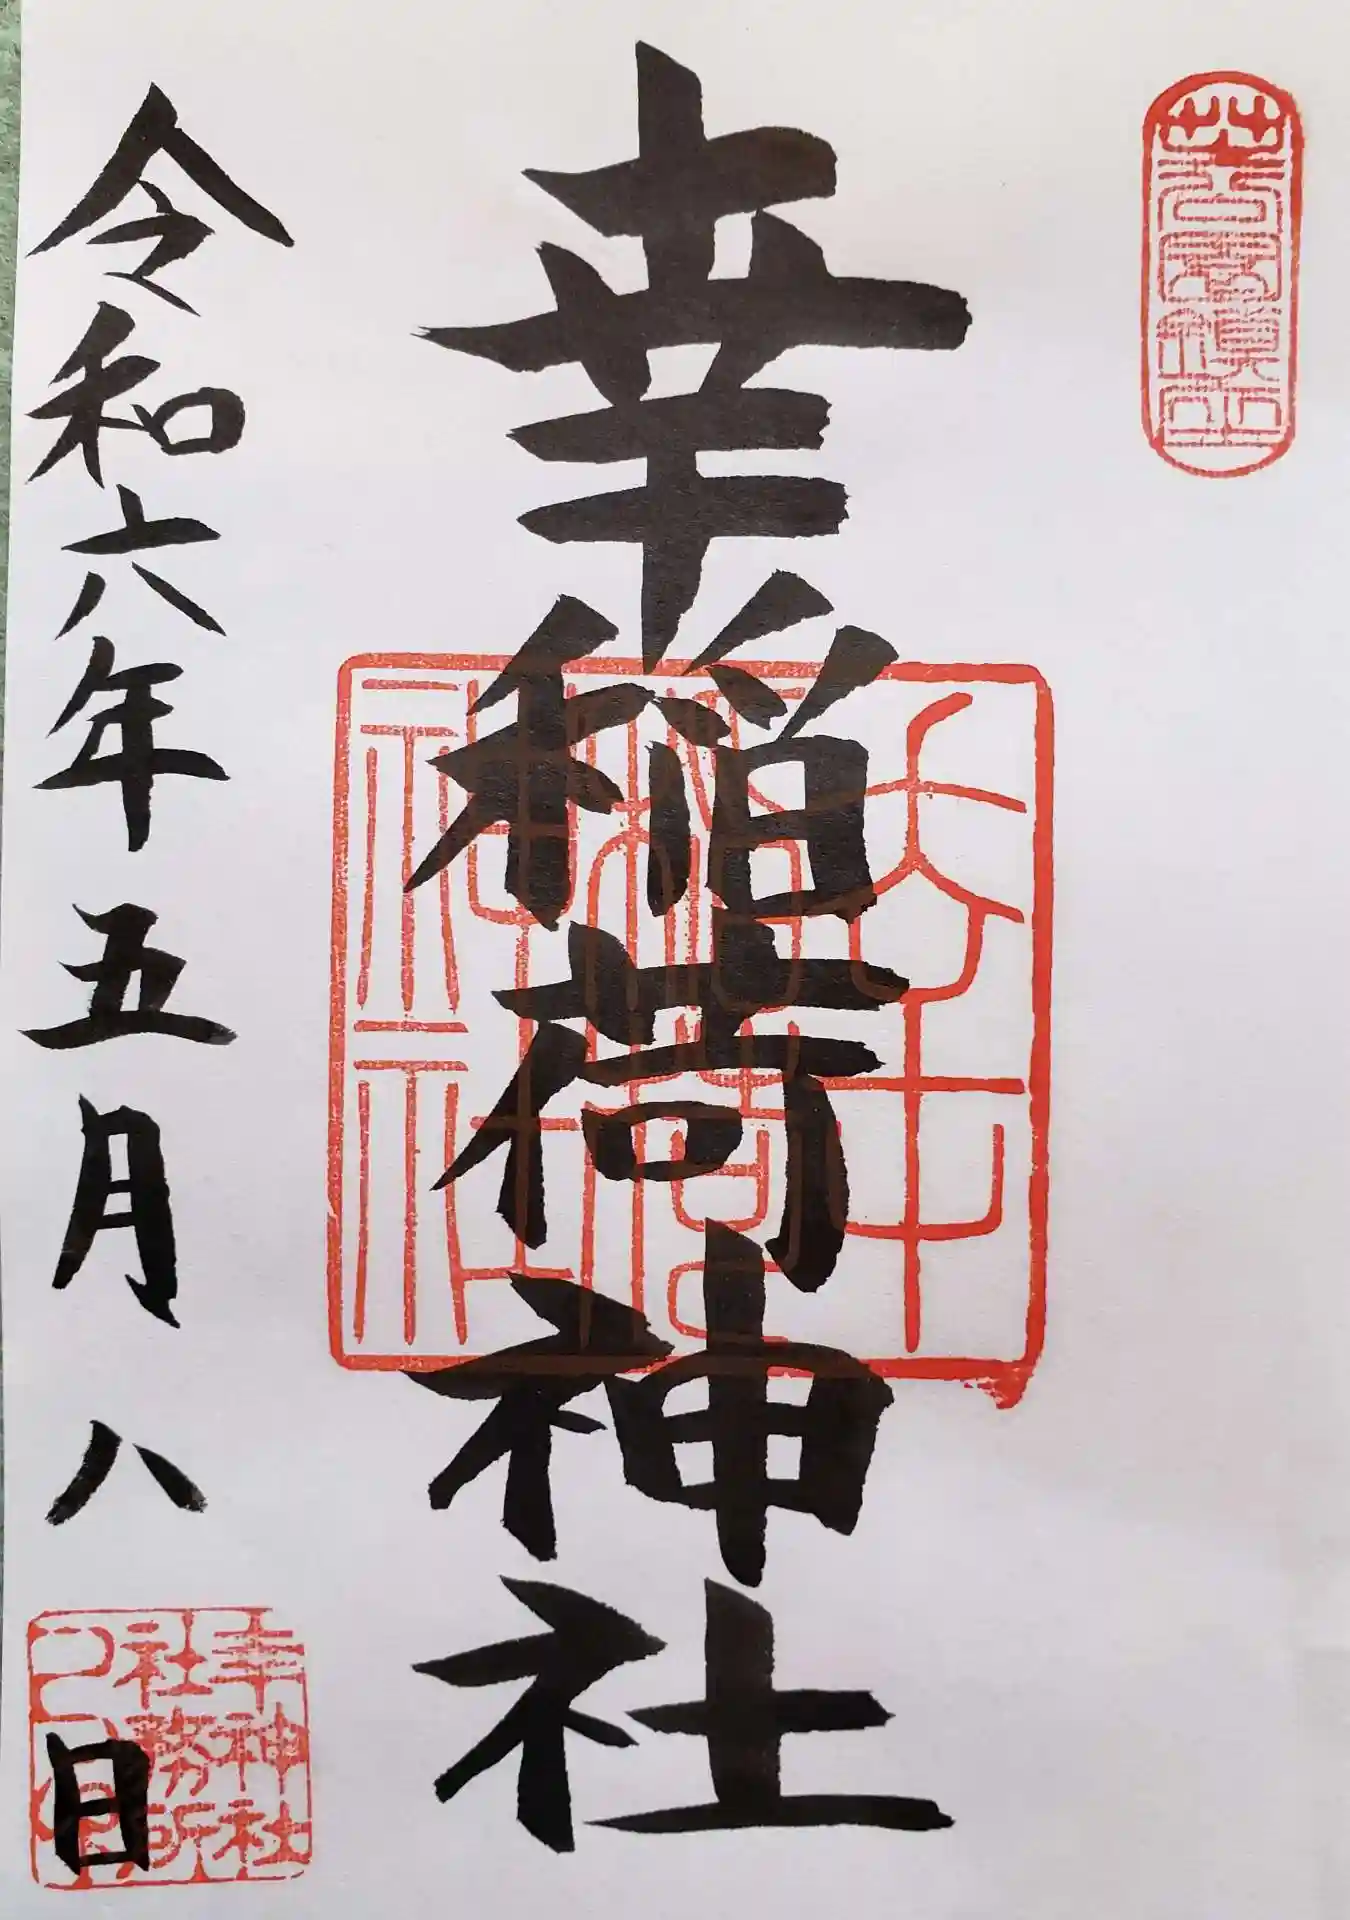 芝公園鎮座
幸稲荷神社
幸稲荷神社
令和六年五月八日
幸神社
社務所